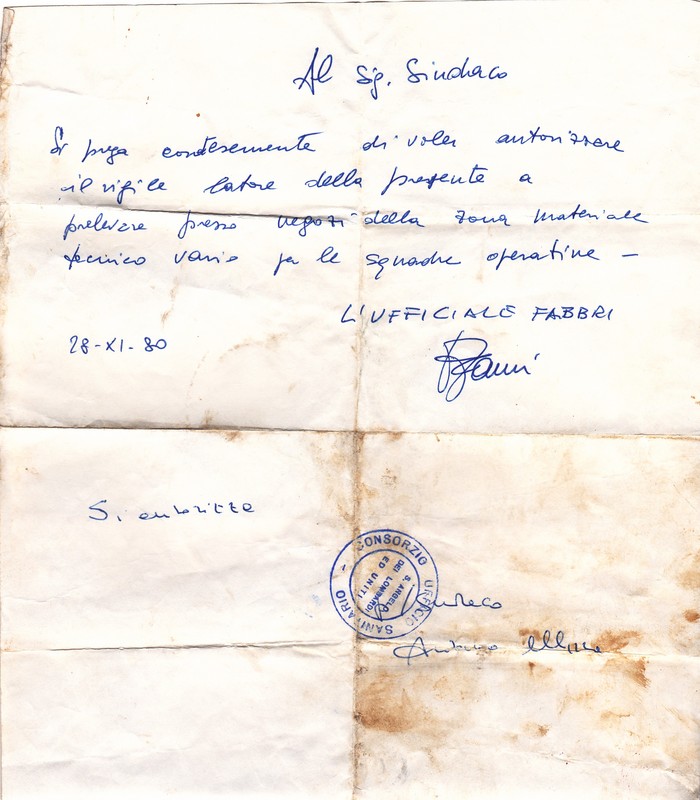 Al Sig. Sindaco
Si prega cortesemente di voler autorizzare
il vigile latore della presente a
prelevare presso negozi della zona materiale
tecnico vario per le squadre operative -
L'UFFICIALE FABBRI
28-XI-80
Si autorizza
CONSORZIO UFFICIO SANITARIO -
S. ANGELO
DEI LOMBARDI
ED UNITI
Sindaco